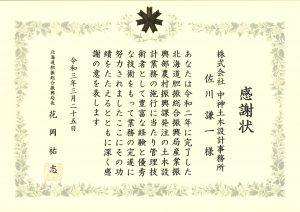 感謝状
株式会社 中神土木設計事務所
佐川謙一様
あなたは令和二年に完了した
北海道胆振総合振興局産業振
興部農村振興課発注の土木設
計業務の施行に当たり管理技
術者として豊富な経験と優秀
な技術をもって業務の完遂に
努力されましたここにその功
績をたたえるとともに深く感
謝の意を表します
令和三年三月二十五日
北海道胆振総合振興局長
花岡祐志